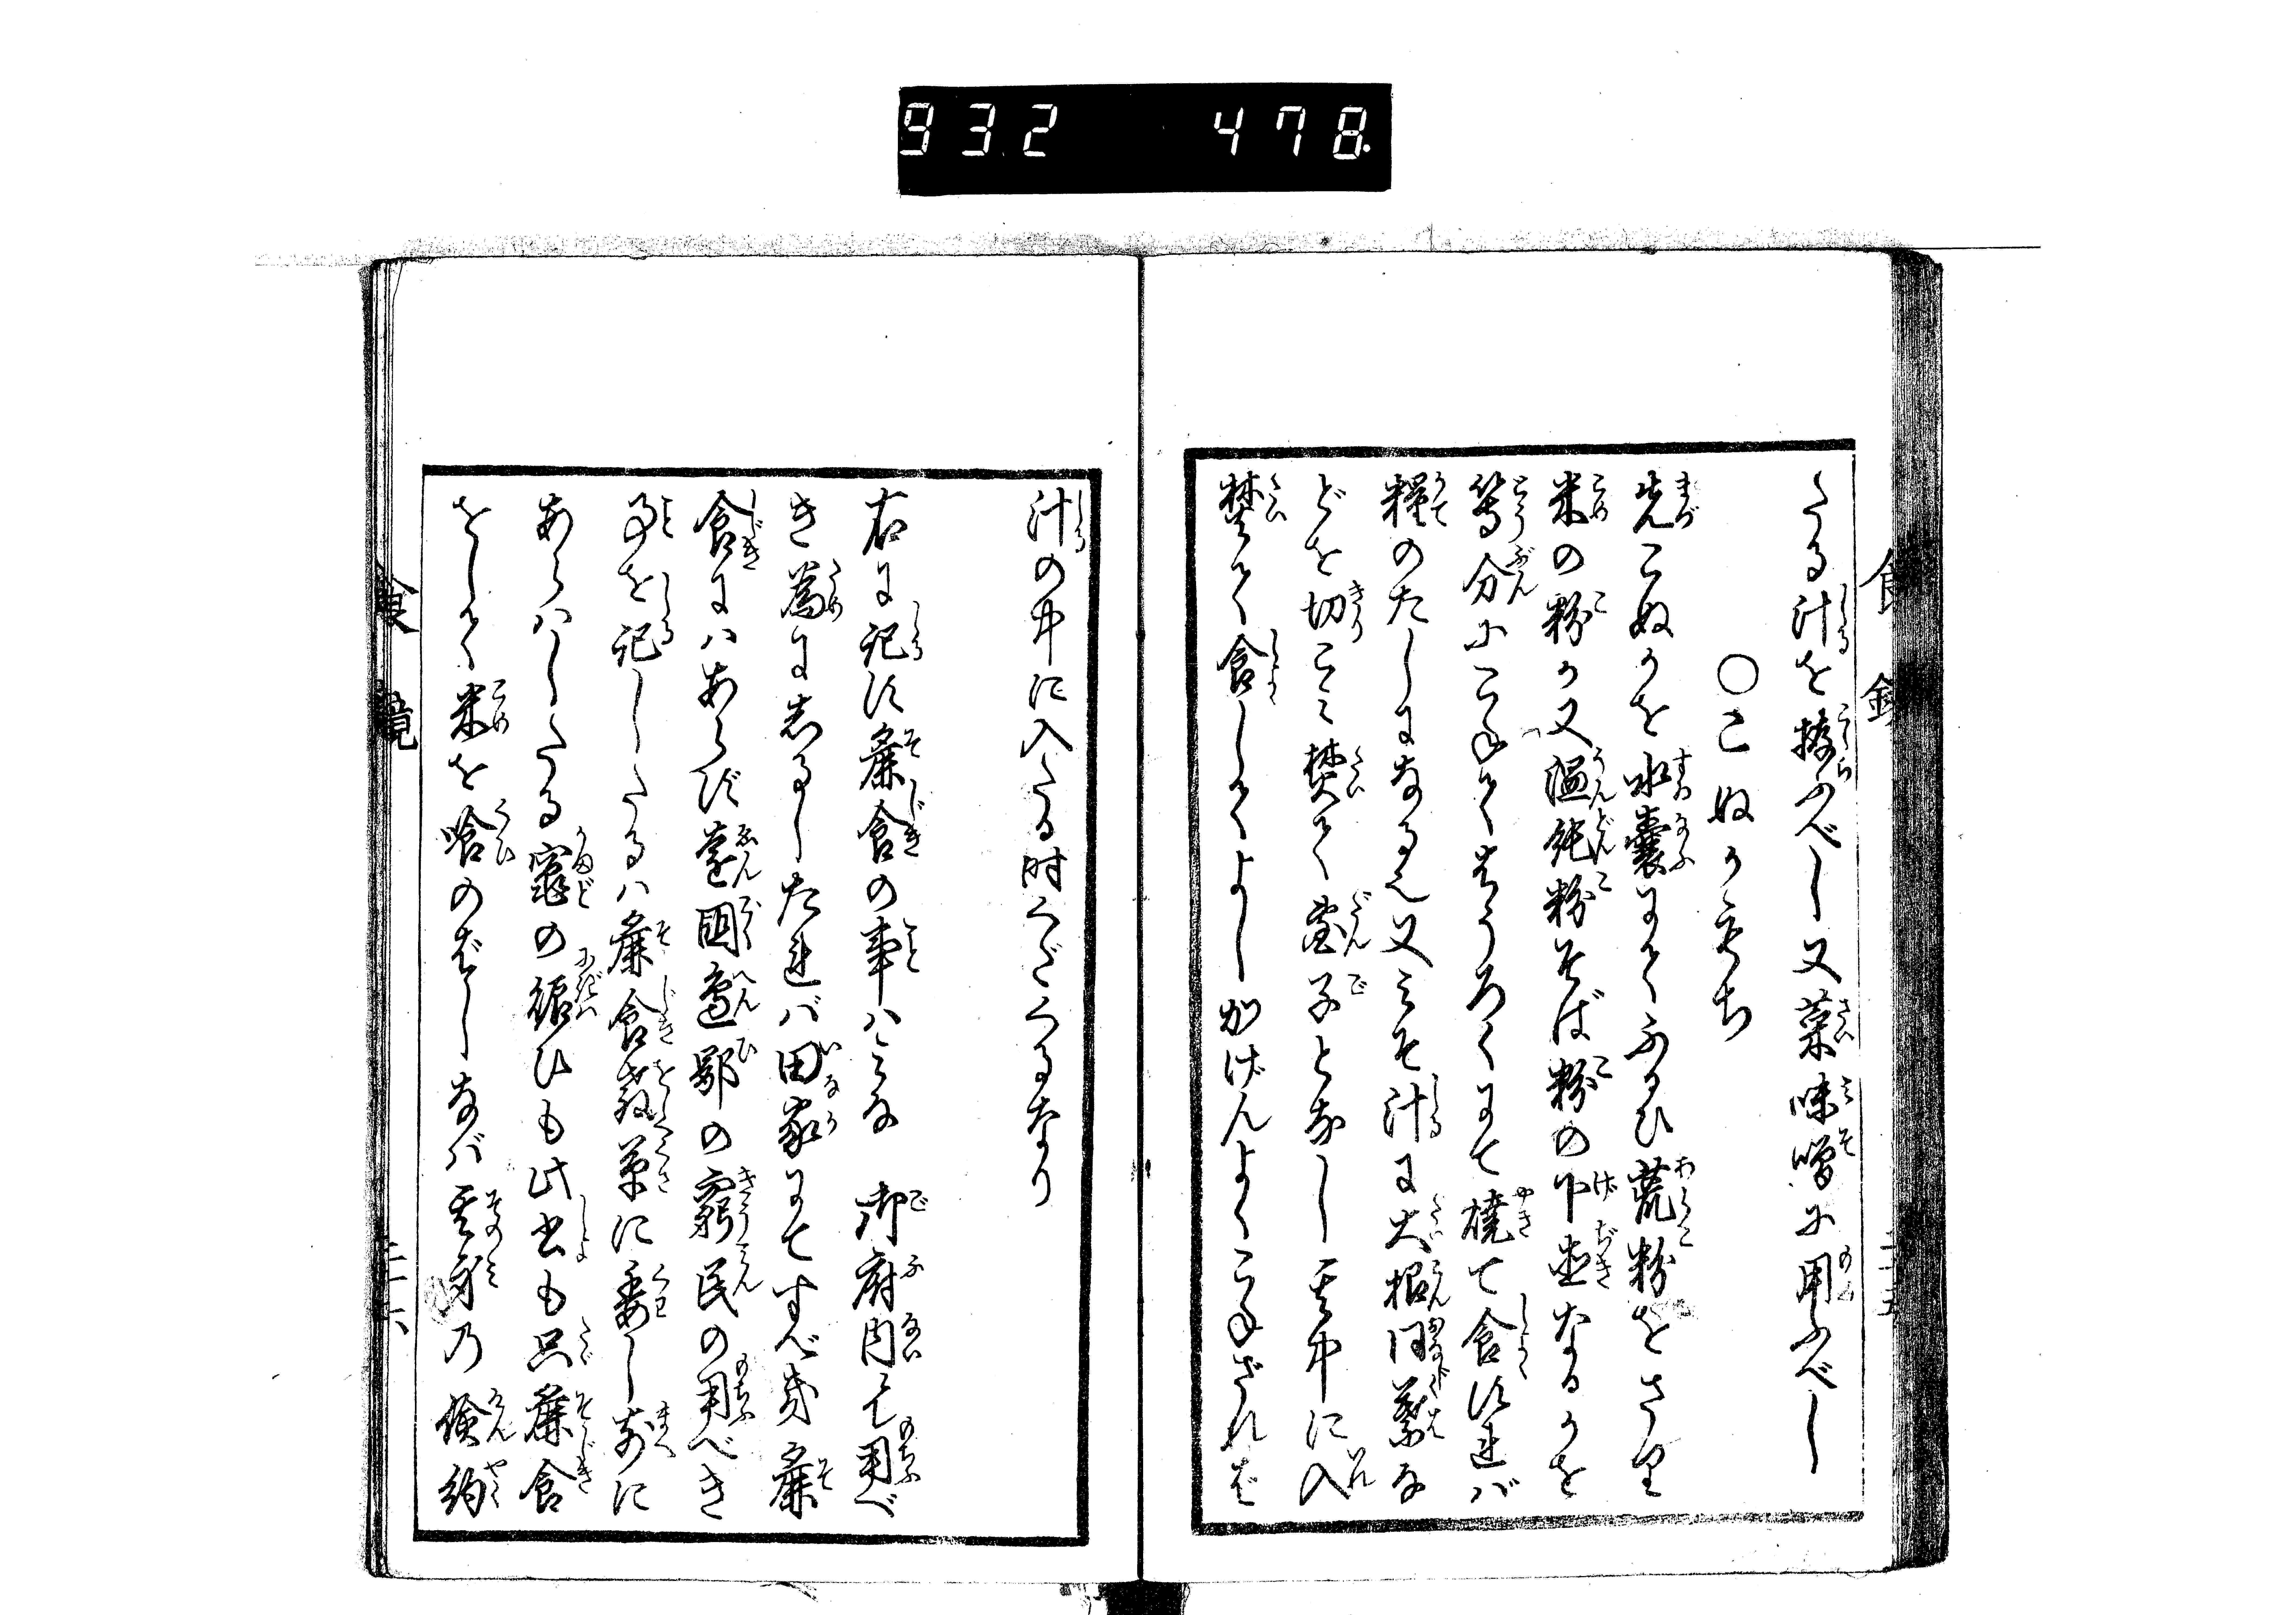 932 478
食鏡
たる汁を拵ふべし又菜味噌に用ふべし
○こぬかもち
先こぬかを水嚢にてふるひ荒粉をさり
米の粉か又温飩粉そば粉の下直なるかを
等分にこねてはうろくにて焼て食すれバ
糧のたしになる也又みそ汁に大根同葉な
どを切こみ焚て団子となし其中に入
焚て食してよしかげんよくこねざれば
汁の中に入たる時くだくるなり
右に記す麁食の事ハミな 御府内にて用べ
き為にあるしたれバ田家にてすべき麁
食にハあらず遠国邉鄙の窮民の用べき
事を記したるハ麁食教草に委し前に
あらハしたる竈の賑ひも此書も只麁食
をして米を喰のばしなバ其身乃倹約
食鏡
二十六